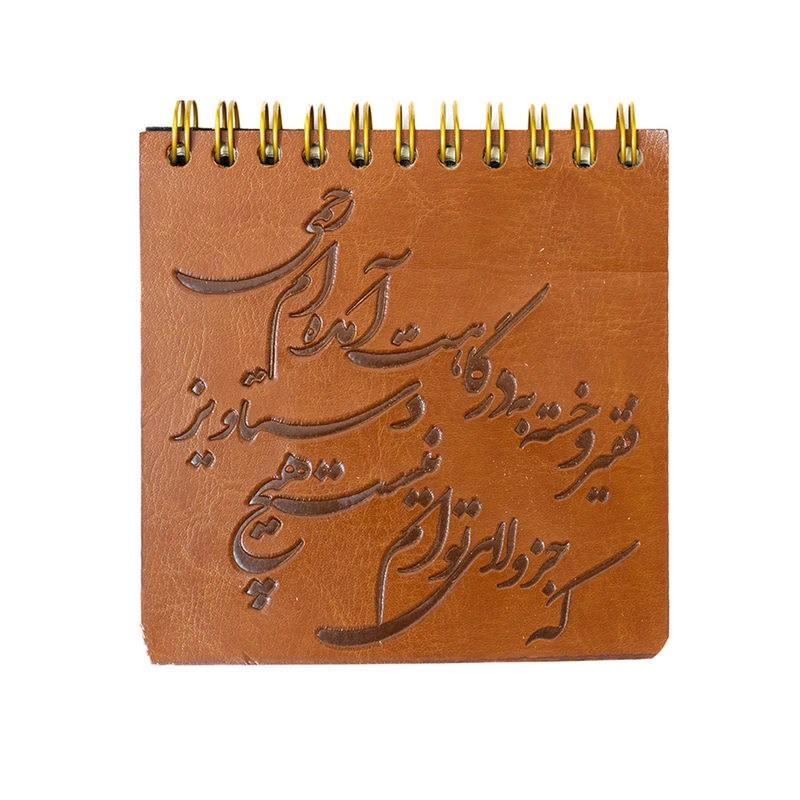 فقیر و خسته به درگاهت آمده‌ام رحمی
که جز ولای توام نیست هیچ دستاویز